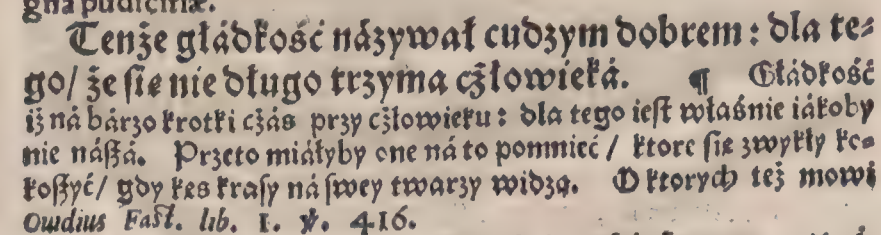 gna pudicitiæ.
Tenże głádkość názywał cudzym dobrem: dla te⸗
go/ że się nie długo trzyma człowieká. ¶ Głádkość
iż ná bárzo krotki czás przy człowieku: dla tego iest właśnie iákoby
nie nászá. Przeto miáłyby one ná to pomnieć / ktore się zwykły ko⸗
koszyć/ gdy kęs krasy ná swey twarzy widzą. O ktorych też mowi
Ouidius Fast. lib. 1. ℣. 416.